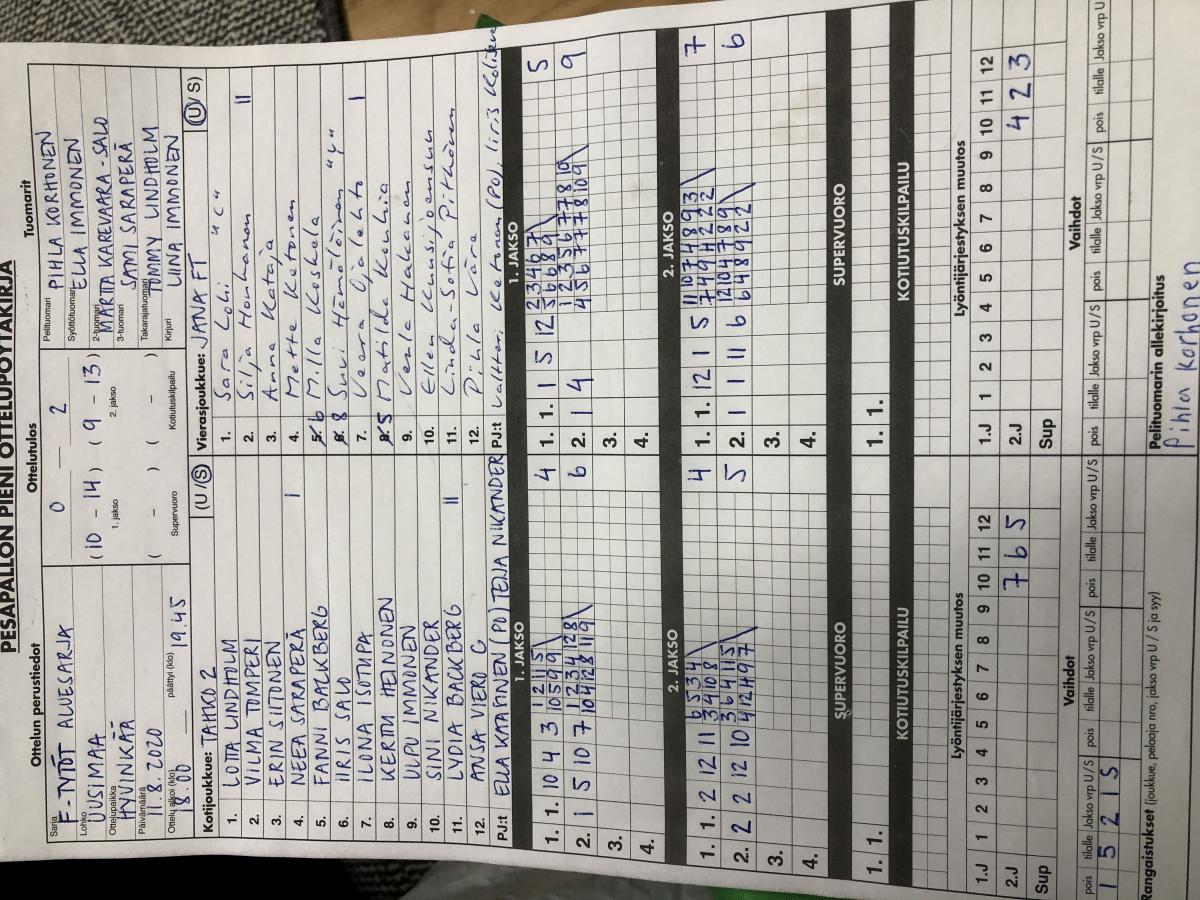 PESÄPALLON PIENI OTTELUPÖYTÄKIRJA
Ottelun perustiedot
Sarja
F-TYTÖT ALUESARJA
Lohko
UUSIMAA
Ottelupaikka
HYVINKÄÄ
Päivämäärä
11.8.2020
Ottelu alkoi (klo) päättyi (klo)
18.00 19.45
Ottelutulos
0 — 2
(10 - 14) (9 - 13)
1. jakso 2. jakso
( - ) ( - )
Supervuoro Kotiutuskilpailu
Tuomarit
Pelituomari PIHLA KORHONEN
Syöttötuomari ELLA IMMONEN
2-tuomari MARTTA KAREVAARA-SALO
3-tuomari SAMI SARAPERÄ
Takarajatuomari TOMMY LINDHOLM
Kirjuri LIINA IMMONEN
Kotijoukkue: TAHKO 2 (U/S)
1. LOTTA LINDHOLM
2. VILMA TOMPERI
3. ERIN SIITONEN
4. NEEA SARAPERÄ I
5. FANNI BACKBERG
6. IIRIS SALO
7. ILONA ISOTUPA
8. KERTTU HEINONEN
9. ULPU IMMONEN
10. SINI NIKANDER
11. LYDIA BACKBERG II
12. ANSA VIERO C
PJ:t ELLA KAARTINEN (PJ) TEIJA NIKANDER
Vierasjoukkue: JANA FT (U/S)
1. Sara Lohi "C"
2. Silja Honkanen II
3. Anna Kataja
4. Mette Ketonen
5. 6 Milla Koskela
6. 8 Suvi Hämäläinen
7. Veera Ojalehto I
8. 5 Matilda Kouhia
9. Venla Hakanen
10. Ellen Kuusijoensuu
11. Linda-Sofia Pitkänen
12. Pihla Vara
PJ:t Valtteri Ketonen (PJ), Iiris
1. JAKSO
1. 1. 10 4 3 4
2. 1 5 10 7 6
3.
4.
1. JAKSO
1. 1. 1 5 12 5
2. 1 4 9
3.
4.
2. JAKSO
1. 1. 2 12 11 4
2. 2 2 12 10 5
3.
4.
2. JAKSO
1. 1. 12 1 5 7
2. 1 1 11 6 6
3.
4.
SUPERVUORO
1. 1.
SUPERVUORO
1. 1.
KOTIUTUSKILPAILU
KOTIUTUSKILPAILU
Lyöntijärjestyksen muutos
1.J 1 2 3 4 5 6 7 8 9 10 11 12
2.J 7 6 5
Sup
Lyöntijärjestyksen muutos
1.J 1 2 3 4 5 6 7 8 9 10 11 12
2.J 4 2 3
Sup
Vaihdot
pois tilalle Jakso vrp U/S pois tilalle Jakso vrp U/S pois tilalle Jakso vrp U/S
1 5 2 1 S
Vaihdot
pois tilalle Jakso vrp U/S pois tilalle Jakso vrp U/S pois tilalle Jakso vrp U/S
Rangaistukset (joukkue, pelaaja nro, jakso vrp U / S ja syy)
Pelituomarin allekirjoitus
Pihla Korhonen